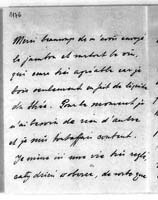 1176
Merci beaucoup de m'avoir envoyé
le jambon et surtout le vin,
qui sera très agréable car je
bois seulement en fait de liquide
du thé. Pour le moment je
n'ai besoin de rien d'autre
et je suis tout à fait content.
Je mène ici une vie très réglée,
de sorte que